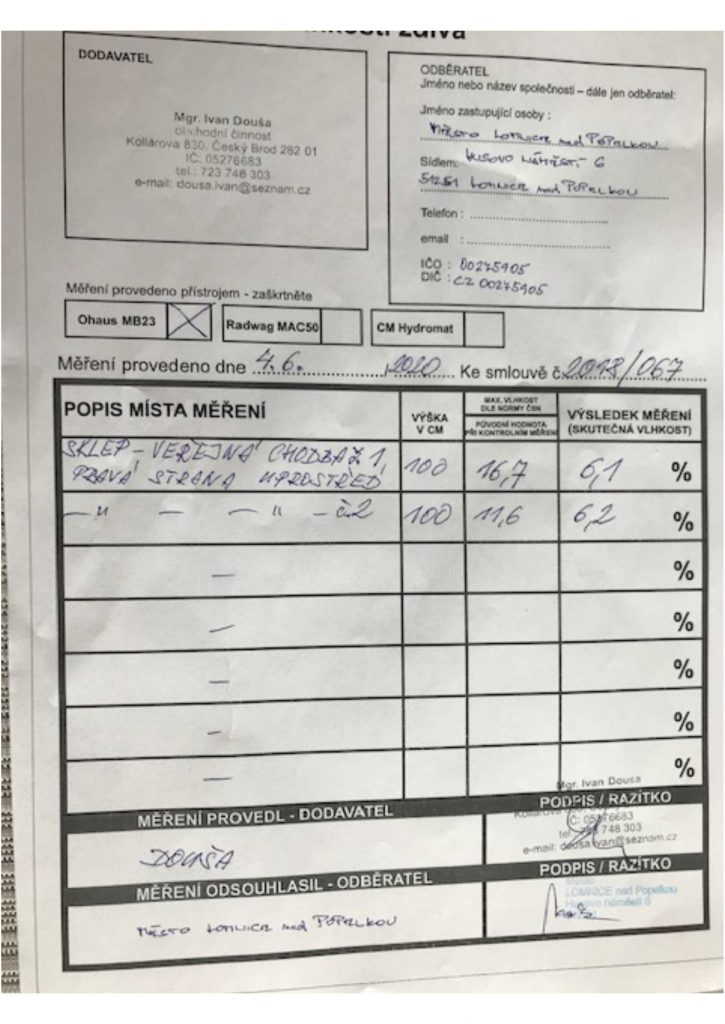 zdiva
DODAVATEL
Mgr. Ivan Douša
obchodní činnost
Kollárova 830, Český Brod 282 01
IČ: 05276683
tel.: 723 748 303
e-mail: dousa.ivan@seznam.cz
ODBĚRATEL
Jméno nebo název společnosti – dále jen odběratel:
Jméno zastupující osoby :
MĚSTO LOMNICE nad POPELKOU
Sídlem: HUSOVO NÁMĚSTÍ 6
51251 LOMNICE nad POPELKOU
Telefon :
email :
IČO : 00275905
DIČ : CZ 00275905
Měření provedeno přístrojem - zaškrtněte
Ohaus MB23 X Radwag MAC50 CM Hydromat
Měření provedeno dne 4.6. 2020 Ke smlouvě č. 2018/067
POPIS MÍSTA MĚŘENÍ
VÝŠKA V CM
MAX. VLHKOST DLE NORMY ČSN
PŮVODNÍ HODNOTA PŘI KONTROLNÍM MĚŘENÍ
VÝSLEDEK MĚŘENÍ (SKUTEČNÁ VLHKOST)
SKLEP - VEŘEJNÁ CHODBA Č 1
PRAVÁ STRANA UPROSTŘED 100 16,7 6,1 %
— " — — " — č.2 100 11,6 6,2 %
— %
— %
— %
— %
— %
MĚŘENÍ PROVEDL - DODAVATEL
PODPIS / RAZÍTKO
DOUŠA
Mgr. Ivan Douša
IČ: 05276683
tel. 723 748 303
e-mail: dousa.ivan@seznam.cz
MĚŘENÍ ODSOUHLASIL - ODBĚRATEL
PODPIS / RAZÍTKO
MĚSTO LOMNICE nad POPELKOU
Město
LOMNICE nad Popelkou
Husovo náměstí 6